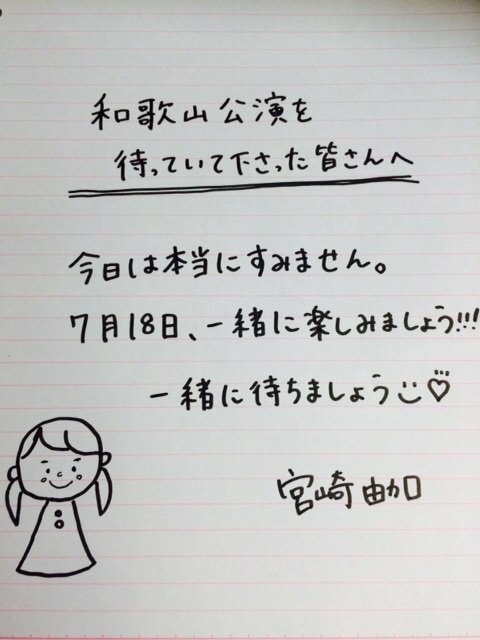 和歌山公演を
待っていて下さった皆さんへ
今日は本当にすみません。
7月18日、一緒に楽しみましょう!!!
一緒に待ちましょう
宮崎由加